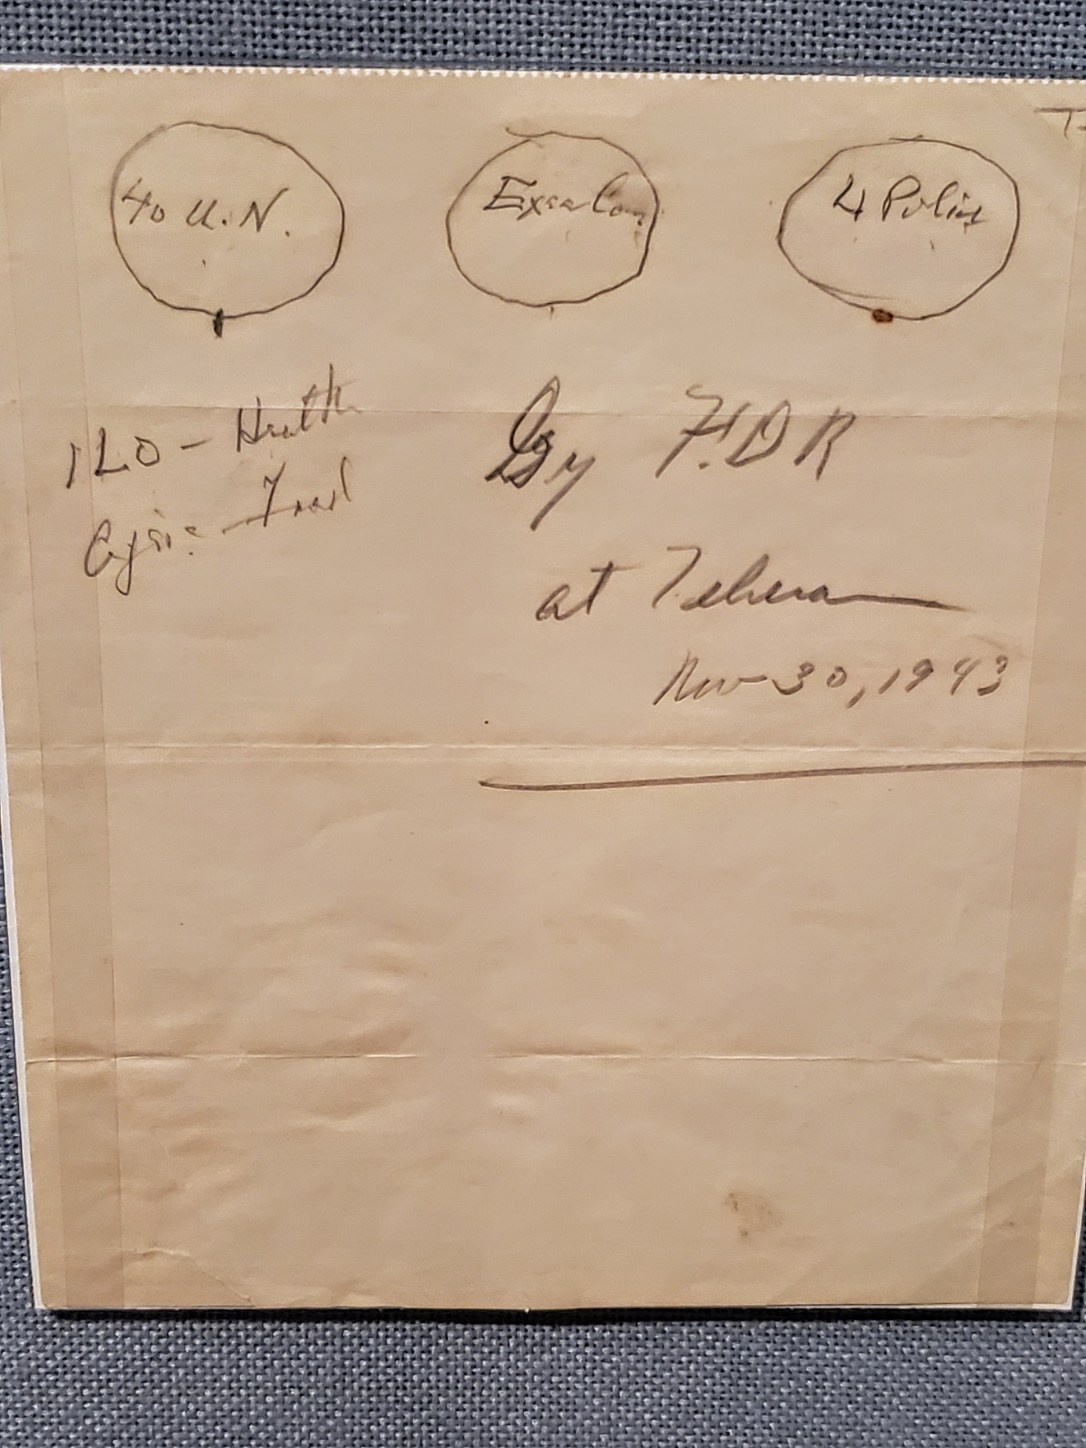 40 U.N.
Exec Com
4 Police
ILO - Health
Agric - Food
By F.D R
at Teheran
Nov 30, 1943